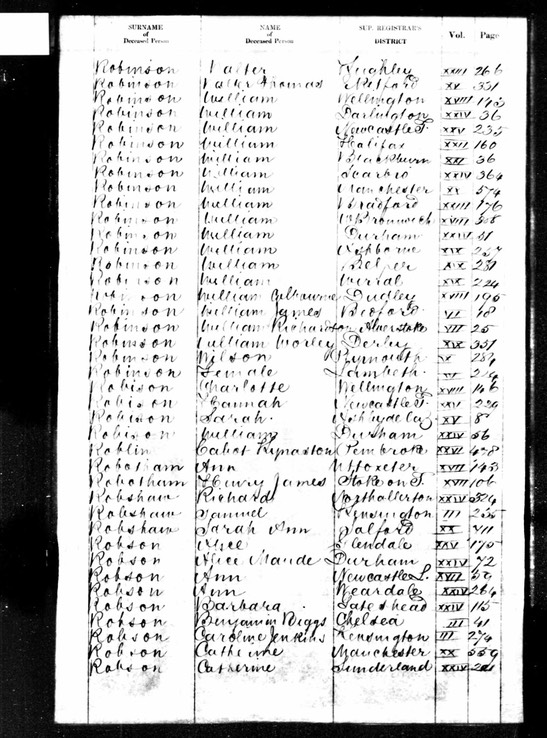 SURNAME of Deceased Person NAME of Deceased Person SUP. REGISTRAR'S DISTRICT Vol. Page
Robinson Walter Keighley XXIII 266
Robinson Walter Thomas Retford XV 331
Robinson William Wellington XVIII 143
Robinson William Darlington XXIV 36
Robinson William Newcastle T. XXV 235
Robinson William Halifax XXII 160
Robinson William Blackburn XXI 36
Robinson William Scarbro XXIV 364
Robinson William Manchester XX 574
Robinson William Bradford XXIII 176
Robinson William W Bromwich XVIII 398
Robinson William Durham XXIV 51
Robinson William Ashborne XIX 257
Robinson William Belper XIX 231
Robinson William Wirral XX 224
Robinson William Gilbourne Dudley XVIII 195
Robinson William James Bedford VI 48
Robinson William Richardson Alverstoke VII 25
Robinson William Worley Derby XIX 351
Robinson Wilson Plymouth 284
Robinson Female Lambeth
Robison Charlotte Wellington XVIII 146
Robison Hannah Newcastle T. XXV 224
Robison Sarah XV 8
Robison William Durham XXIV 56
Roblin Cabot Kynaston Pembroke XXVI 478
Robotham Ann Uttoxeter XVII 143
Robotham Henry James Stoke on T. XVII 106
Robshaw Richard Northallerton XXIV 324
Robshaw Samuel Kensington III 235
Robshaw Sarah Ann Salford XX 711
Robson Alice Glendale XXV 175
Robson Alice Maude Durham XXIV 72
Robson Ann Newcastle L. XVII 59
Robson Ann Weardale XXIV 264
Robson Barbara Gateshead XXIV 115
Robson Benjamin Biggs Chelsea III 41
Robson Caroline Jenkins Kensington III 274
Robson Catherine Manchester XX 559
Robson Catherine Sunderland XXIV 221